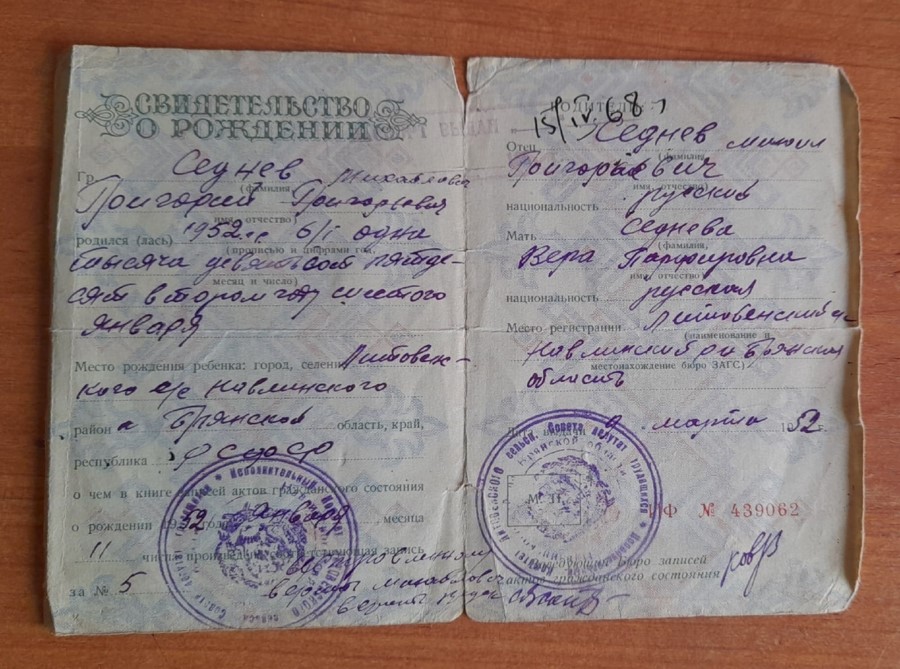 СВИДЕТЕЛЬСТВО
О РОЖДЕНИИ
Гр. Седнев
(фамилия
Михайлович
Григорий Григорьевич
имя, отчество)
родился (лась) 1952 г. 6/I одна
(прописью и цифрами год,
тысяча девятьсот пятьде-
месяц и число)
сят втором году шестого
января
Место рождения ребенка: город, селение Литовен-
кого с/с Навлинского
район а Брянской область, край,
республика РСФСР
о чем в книге записей актов гражданского состояния
о рождении 1952 года января месяца
11 числа произведена соответствующая запись
за № 5
верить
РОДИТЕЛИ:
15/IV.68
Отец Седнев Михаил
(фамилия,
Григорьевич
имя, отчество)
национальность русский
Мать Седнева
(фамилия,
Вера Парфировна
имя, отчество)
национальность русская
Место регистрации Литовенский
(наименование и
Навлинский Брянская
местонахождение бюро ЗАГС)
область
Дата выдачи 9 марта 1952 г.
М. П.
№ 439062
Заведующий бюро записей
актов гражданского состояния